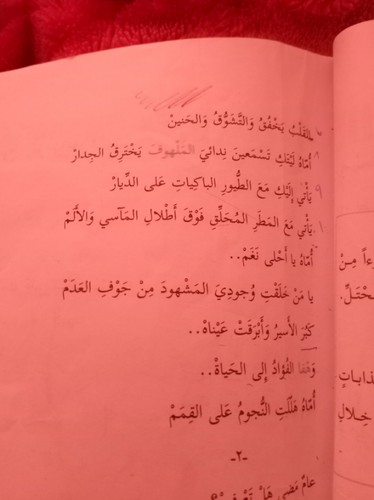 القَلْبُ يَخْفُقُ وَالتَّشَوُّقُ وَالحَنينْ
أُمّاهُ لَيْتَكِ تَسْمَعينَ نِدائيَ المَلْهوفَ يَخْتَرِقُ الجِدارْ
٩ يَأْتي إِلَيْكِ مَعَ الطُّيورِ الباكِياتِ عَلى الدِّيارْ
يَأْتي مَعَ المَطَرِ المُحَلِّقِ فَوْقَ أَطْلالِ المَآسي وَالأَلَمْ
أُمّاهُ يا أَحْلى نَغَمْ..
يا مَنْ خَلَقْتِ وُجودِيَ المَشْهودَ مِنْ جَوْفِ العَدَمْ
كَبُرَ الأَسيرُ وَأَبْرَقَتْ عَيْناهُ..
وَهَفا الفُؤادُ إِلى الحَياةْ..
أُمّاهُ هَلَّلَتِ النُّجومُ عَلى القِمَمْ
-٢-
عامٌ مَضى هَلْ
ءاً مِنْ
حْتَلِّ.
ذاباتِ
خِلالِ